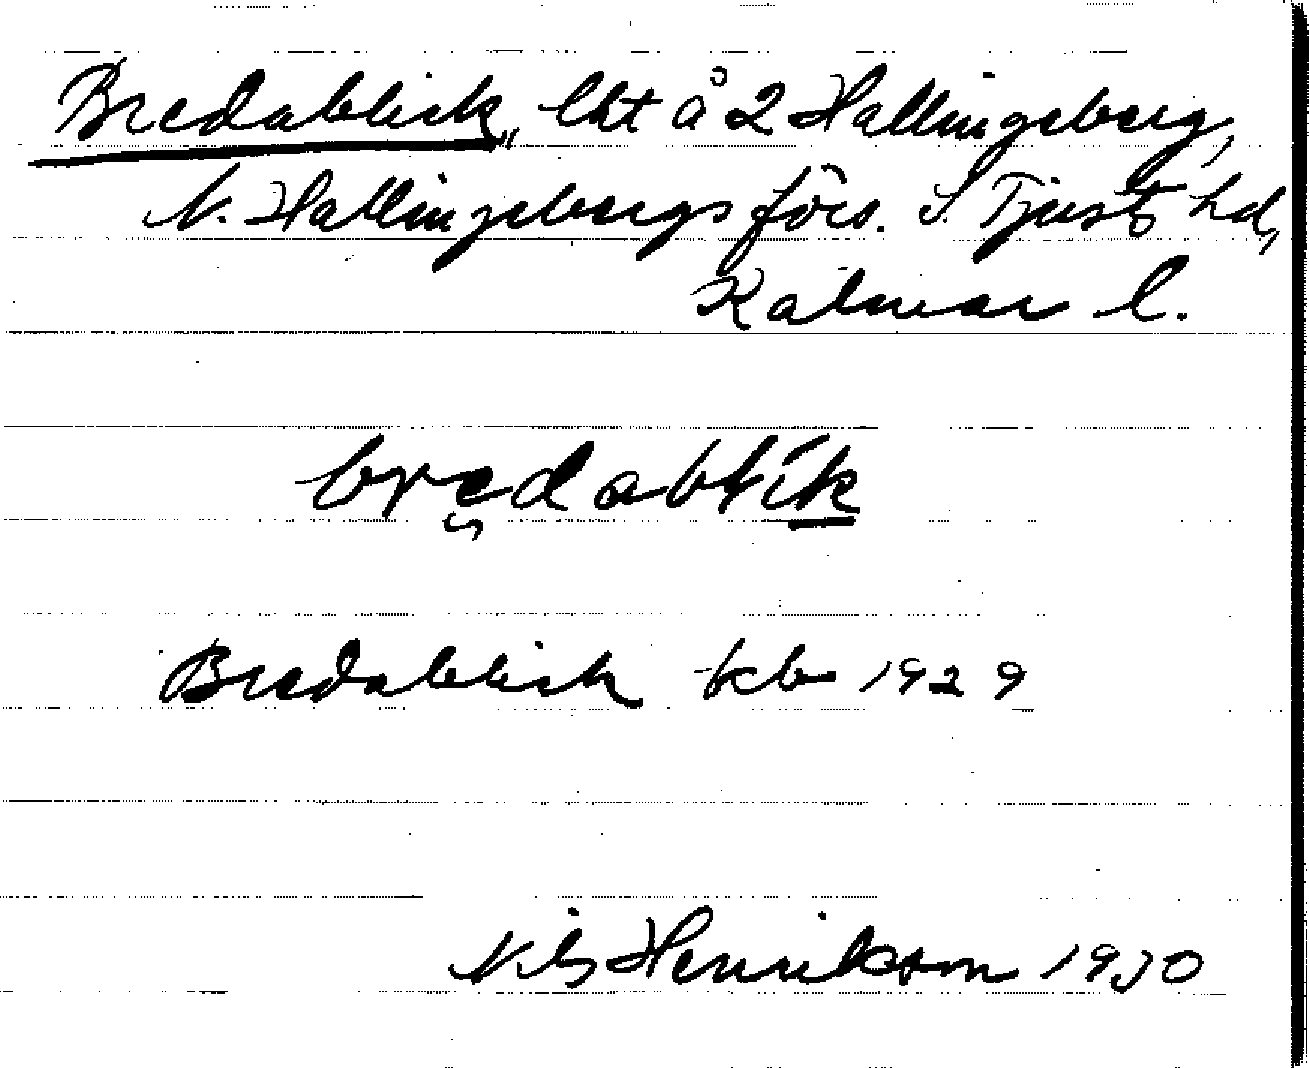 Bredablick, lht å 2 Hallingeberg,
N. Hallingebergs förs. S. Tjusts hd,
Kalmar l.
bredablik
Bredablick kb 1929
Nils Henrikson 1930